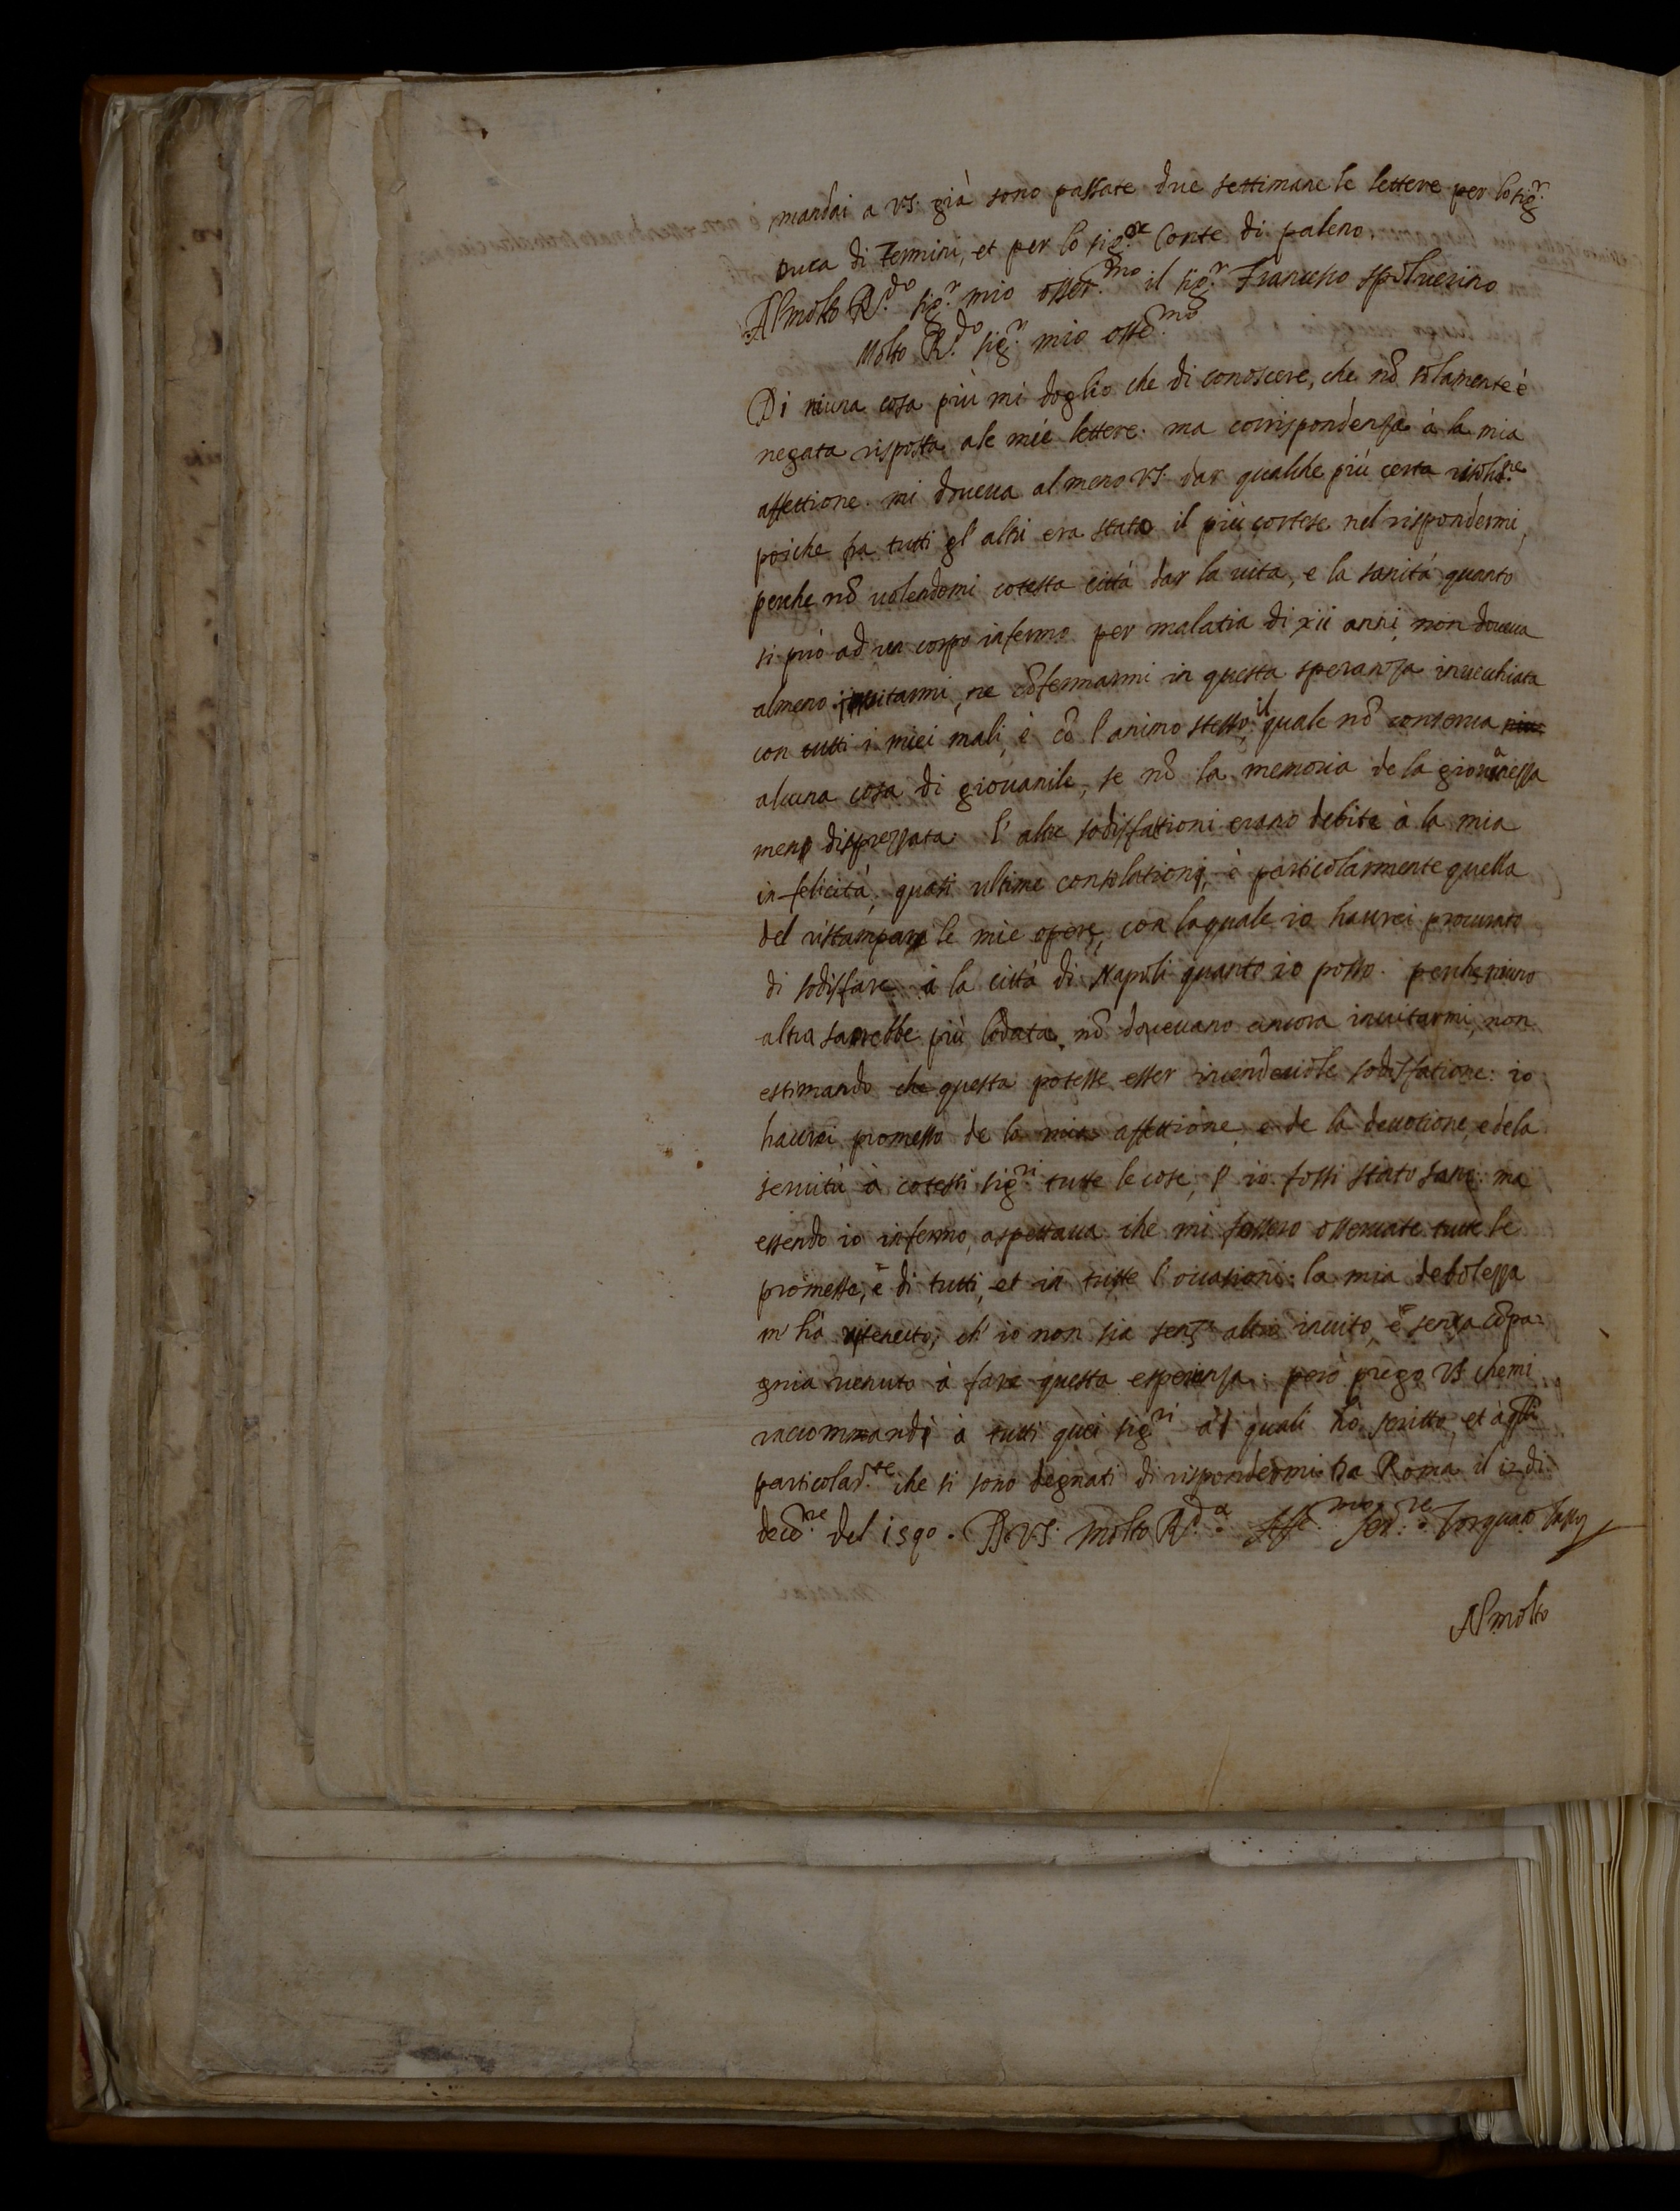 mandai a VS. già sono passate due settimane le lettere per lo sig.r
Duca di Termini, et per lo sig.or Conte di paleno.
Al molto R.do sig.r mio osser.mo il sig.r Francesco spoluerino
Molto R.do sig.r mio osse.mo
Di niuna cosa più mi doglio che di conoscere, che nõ solamente è
negata risposta ale mie lettere. ma corrispondenza à la mia
affettione. mi doueua almeno VS. dar qualche più certa risolu.ne
poiche fra tutti gl' altri era stato il più cortese nel rispondermi,
perche nõ uolendomi cotesta città dar la uita, e la sanità quanto
si può ad un corpo infermo per malatia di xii anni, non doueua
almeno inuitarmi, ne cõfermarmi in questa speranza inuecchiata
con tutti i miei mali, è cõ l'animo stesso, il quale nõ conserua più
alcuna cosa di giouanile, se nõ la memoria de la giouanezza
meno disprezzata. l' altre sodisfattioni erano debite à la mia
infelicità, quasi ultime consolationi, è particolarmente quella
del ristampare le mie opere, con laquale io haurei procurato
di sodisfare à la città di Napoli quanto io posso. perche niuno
altra sarebbe più lodata. nõ doueuano ancora inuitarmi, non
estimando che questa potesse esser uicendeuole sodisfatione: io
haurei promesso de la mia affettione, e de la deuotione, e de la
seruitù à cotesti sig.ri tutte le cose, s' io fossi stato sano: ma
essendo io infermo, aspettaua che mi fossero osseruate tutte le
promesse, è di tutti, et in tutte l'occasioni: la mia debolezza
m' hà ritenuto, ch' io non sia senza altro inuito, è senza cõpa=
gnia uenuto à fare questa esperienza. però prego VS. che mi
raccommandi à tutti quei sig.ri a i quali hò scritto, et à qlli
particolar.te che si sono degnati di rispondermi. Da Roma il 12 di
decẽ.re del 1590. D. VS. Molto R.da Affe.mo ser.re Torquato Tasso
Al molto